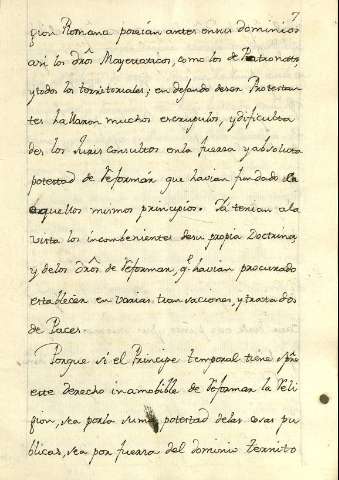 7
gion Romana poseían antes en sus dominios
asi los dr̃os Mayestaticos, como los de Patronato
y todos los territoriales; en dejando de ser Protestan
tes hallaron muchos escrupulos, y dificulta
des los Juris Consultos en la fuerza y absoluta
potestad de Reformár que havian fundado
aquellos mismos principios. Yá tenian a la
vista los incombenientes de su propia Doctrina
y de los dr̃os de Reforman, q.e havian procurado
establecér en varias transaciones, y tratados
de Paces.
Porque si el Principe temporal tiene spr̃e
este derecho inamobible de Reformar la Reli
gion, sea por la suma potestad de las cosas pu
blicas, sea por fuerza del dominio territo